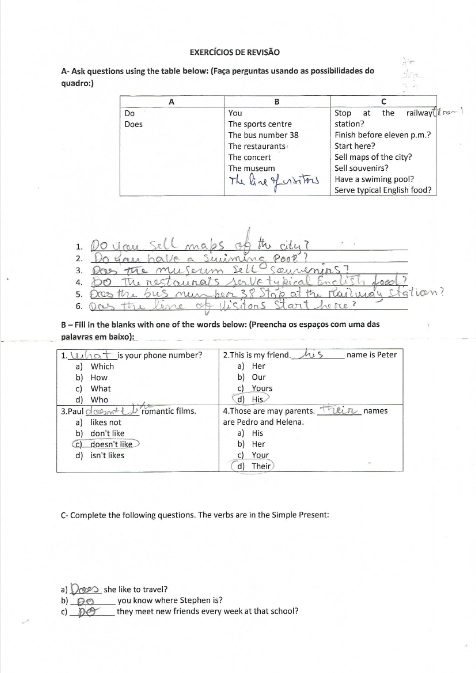 EXERCÍCIOS DE REVISÃO
A- Ask questions using the table below: (Faça perguntas usando as possibilidades do
quadro:)
A B C
Do You Stop at the railway
Does The sports centre station?
The bus number 38 Finish before eleven p.m.?
The restaurants Start here?
The concert Sell maps of the city?
The museum Sell souvenirs?
The line of visitors Have a swiming pool?
Serve typical English food?
1. Do you sell maps of the city?
2. Do you have a swiming pool?
3. Does the museum sell souvenirs?
4. Do the restaurats serve typical English food?
5. Does the bus number 38 stop at the railway station?
6. Das the line of visitons start here?
B – Fill in the blanks with one of the words below: (Preencha os espaços com uma das
palavras em baixo):
1. What is your phone number?
a) Which
b) How
c) What
d) Who
2.This is my friend. his name is Peter
a) Her
b) Our
c) Yours
d) His
3.Paul doesn't like romantic films.
a) likes not
b) don't like
c) doesn't like
d) isn't likes
4.Those are may parents. Their names
are Pedro and Helena.
a) His
b) Her
c) Your
d) Their
C- Complete the following questions. The verbs are in the Simple Present:
a) Does she like to travel?
b) Do you know where Stephen is?
c) Do they meet new friends every week at that school?